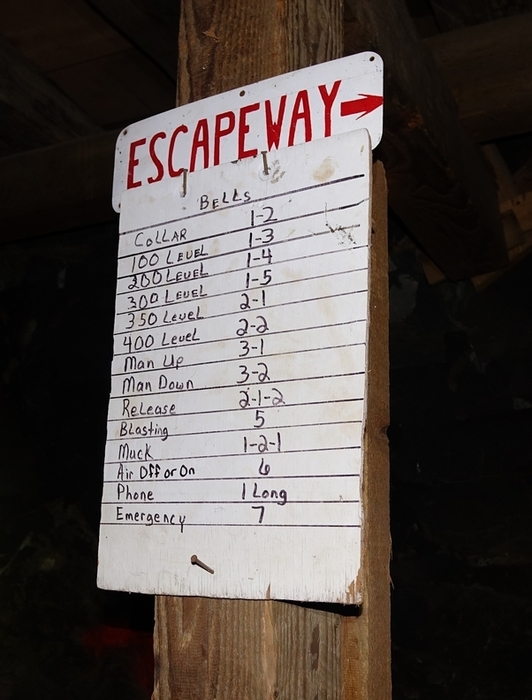 ESCAPEWAY
BELLS
COLLAR 1-2
100 LEVEL 1-3
200 LEVEL 1-4
300 LEVEL 1-5
350 Level 2-1
400 Level 2-2
Man Up 3-1
Man Down 3-2
Release 2-1-2
Blasting 5
Muck 1-2-1
Air Off or On 6
Phone 1 Long
Emergency 7